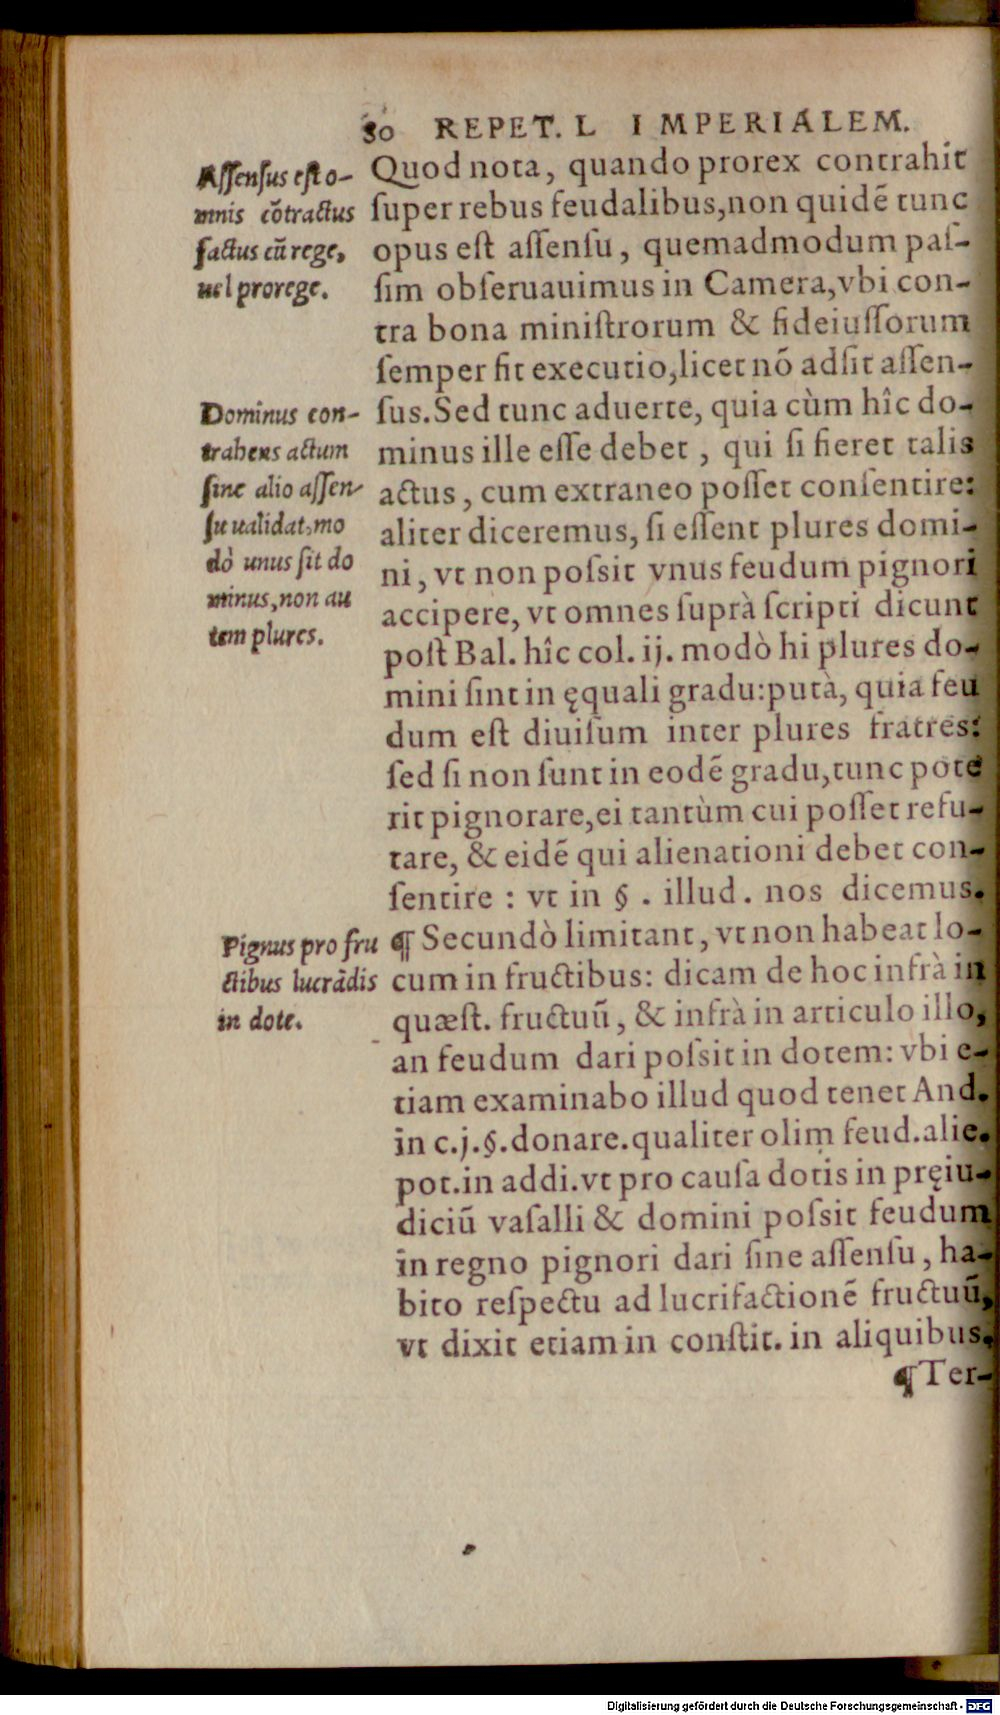 80 REPET. L IMPERIALEM.
Aſſenſus eſt o-
mnis cōtractus
factus cū rege,
uel prorege.
Quod nota, quando prorex contrahit
ſuper rebus feudalibus,non quidē tunc
opus eſt aſſenſu, quemadmodum paſ-
ſim obſeruauimus in Camera,vbi con-
tra bona miniſtrorum & fideiuſſorum
ſemper fit executio,licet nō adſit aſſen-
ſus.Sed tunc aduerte, quia cùm hîc do-
minus ille eſſe debet, qui ſi fieret talis
actus, cum extraneo poſſet conſentire:
aliter diceremus, ſi eſſent plures domi-
ni, vt non poſsit vnus feudum pignori
accipere, vt omnes ſuprà ſcripti dicunt
poſt Bal. hîc col. ij. modò hi plures do-
mini ſint in ęquali gradu:putà, quia feu
dum eſt diuiſum inter plures fratres:
ſed ſi non ſunt in eodē gradu,tunc pote
rit pignorare,ei tantùm cui poſſet refu-
tare, & eidē qui alienationi debet con-
ſentire : vt in § . illud. nos dicemus.
Dominus con-
trahens actum
ſine alio aſſen-
ſu ualidat,mo
dò unus ſit do
minus,non au
tem plures.
¶ Secundò limitant, vt non habeat lo-
cum in fructibus: dicam de hoc infrà in
quæſt. fructuū, & infrà in articulo illo,
an feudum dari poſsit in dotem: vbi e-
tiam examinabo illud quod tenet And.
in c.j.§.donare.qualiter olim feud.alie.
pot.in addi.vt pro cauſa dotis in pręiu-
diciū vaſalli & domini poſsit feudum
in regno pignori dari ſine aſſenſu, ha-
bito reſpectu ad lucrifactionē fructuū,
vt dixit etiam in conſtit. in aliquibus.
Pignus pro fru
ctibus lucrādis
in dote.
¶Ter-
Digitalisierung gefördert durch die Deutsche Forschungsgemeinschaft - DFG